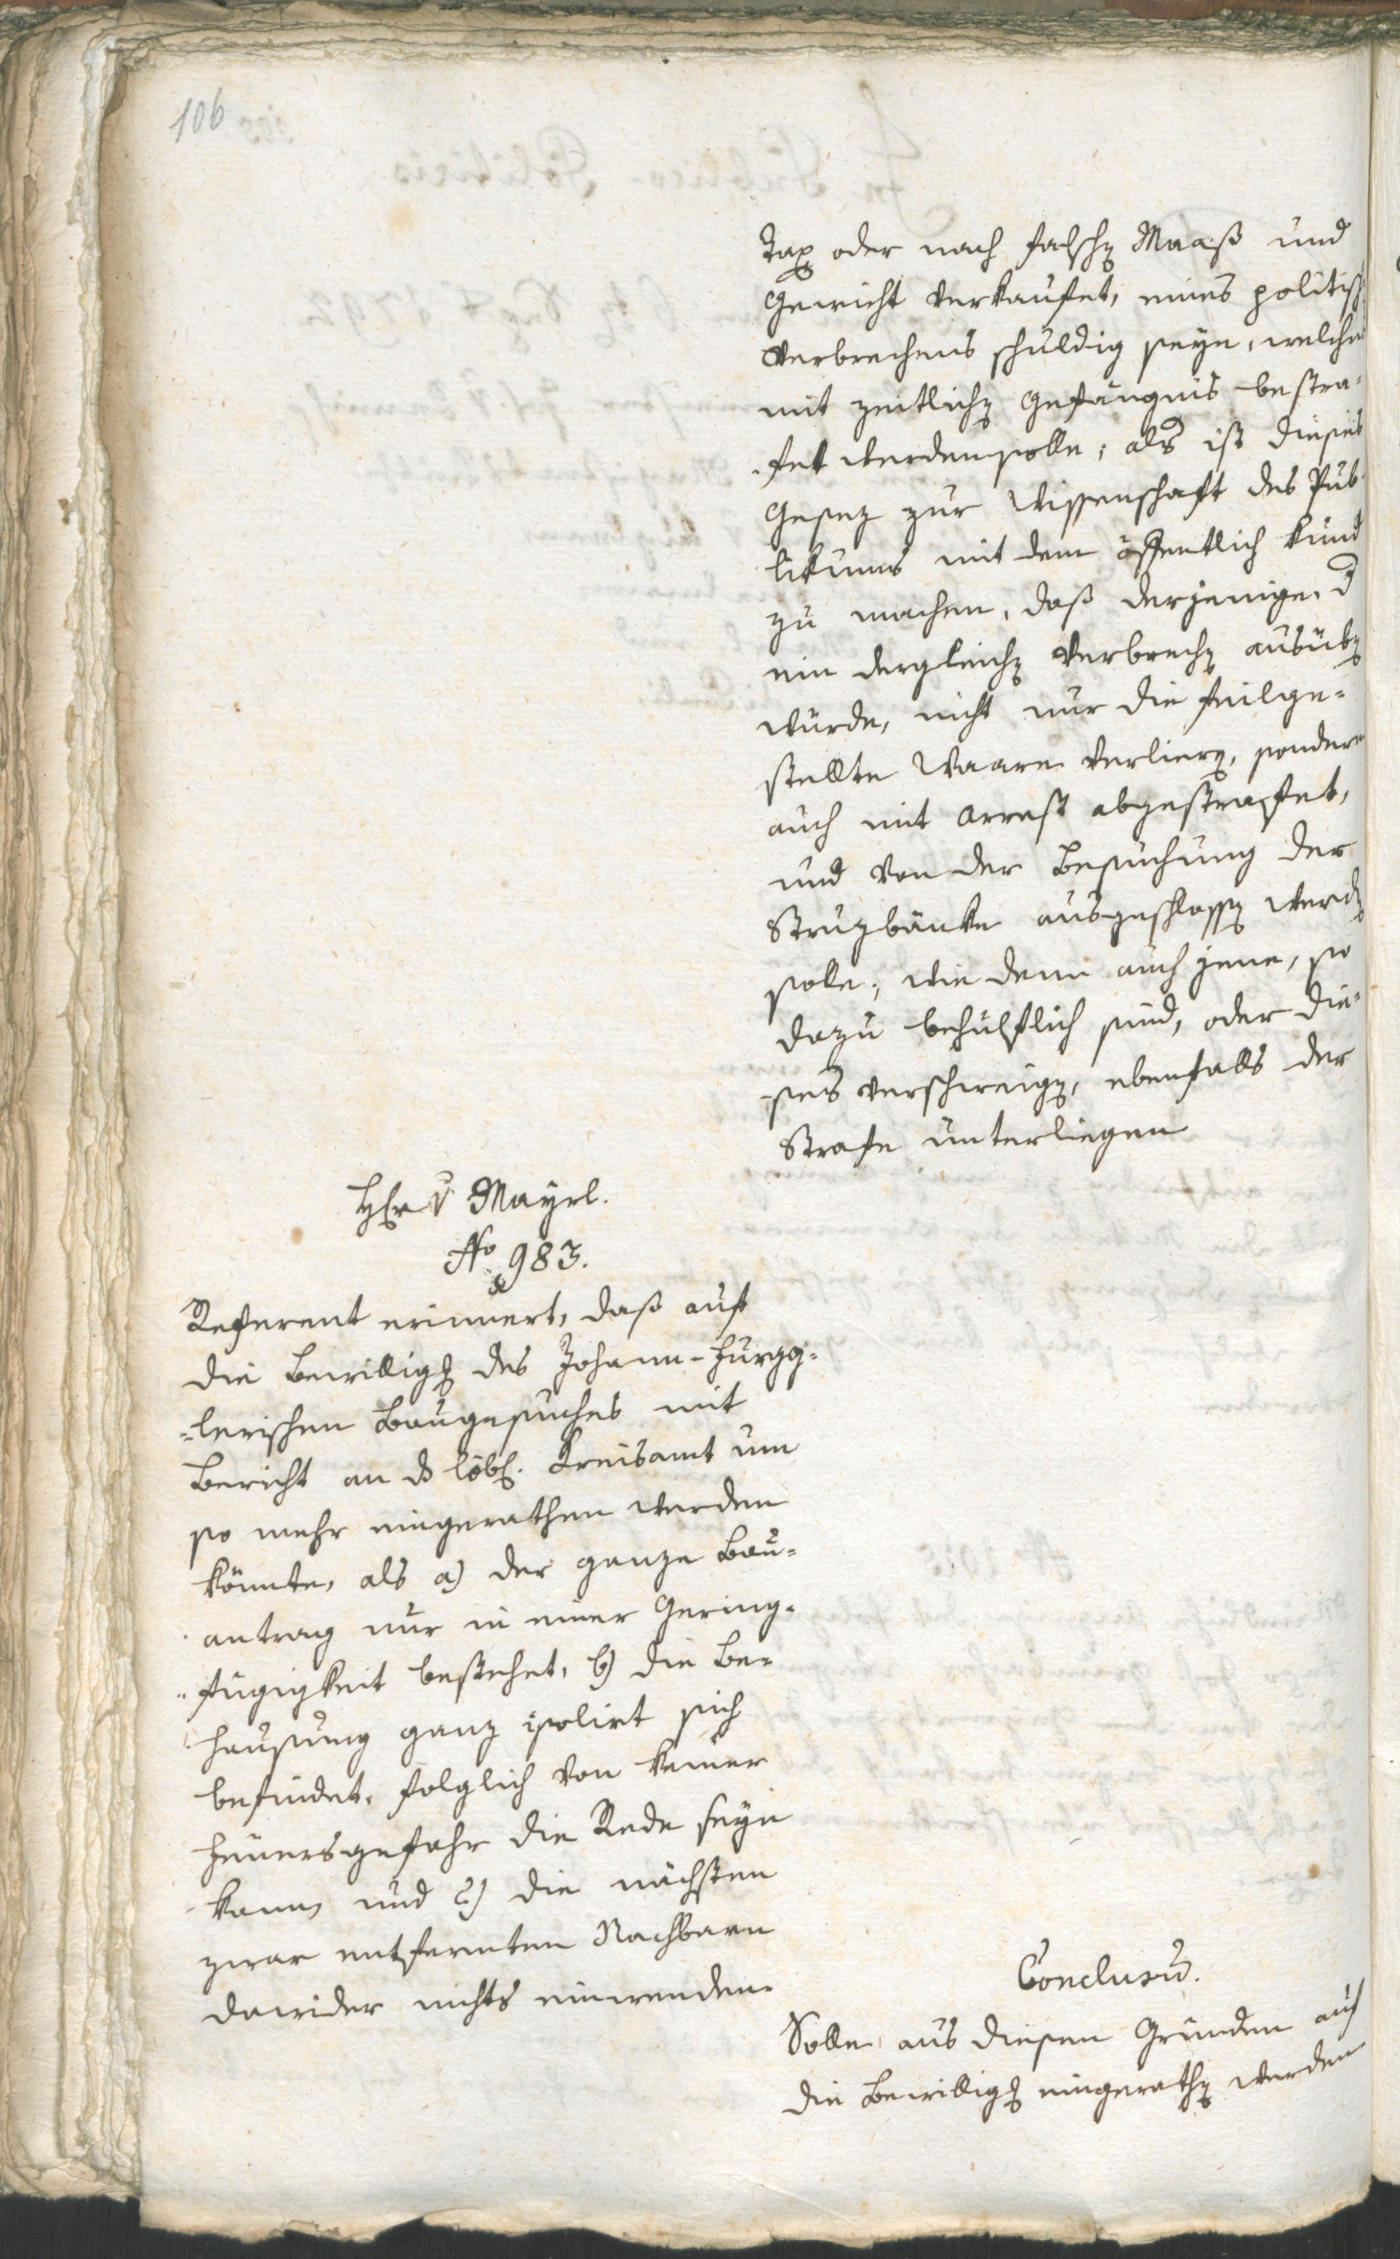 106
Tax oder nach falschen Maaß und
Gewicht verkaufet, eines politisch
verbrechens schuldig seye, welches
mit zeitlichen Gefängnis bestra-
fet werden solle; als ist dieses
Gesez zur Wissenschaft des Pub-
likums mit dem öffentlich kund
zu machen, daß derjenige, der
ein dergleichen Verbrechen ausüben
würde, nicht nur die feilge-
stellte Waare verlieren, sondern
auch mit Arrest abgestrafet,
und von der Besuchung der
bänke ausgeschlossen werden
solle, wie denn auch jene, so
dazu behülflich sind, oder die-
ses verschweigen, ebenfalls der
Strafe unterliegen
Herr v Mayrl.
No 983.
Referent erinnert, daß auf
die Bewilligung des Johann
-lerischen Baugesuches mit
Bericht an das löbl. Kreisamt um
so mehr eingerathen werden
könnte, als a) der ganze Bau-
antrag nur in einer Gering-
fügigkeit bestehet, b) die Be-
hausung ganz isolirt sich
befindet, folglich von keiner
Feuersgefahr die Rede seyn
kann, und c) die nächsten
zwar entfernten Nachbarn
dawider nichts einwenden.
Conclusum.
Solle aus diesen Gründen auf
die Bewilligung eingerathen werden